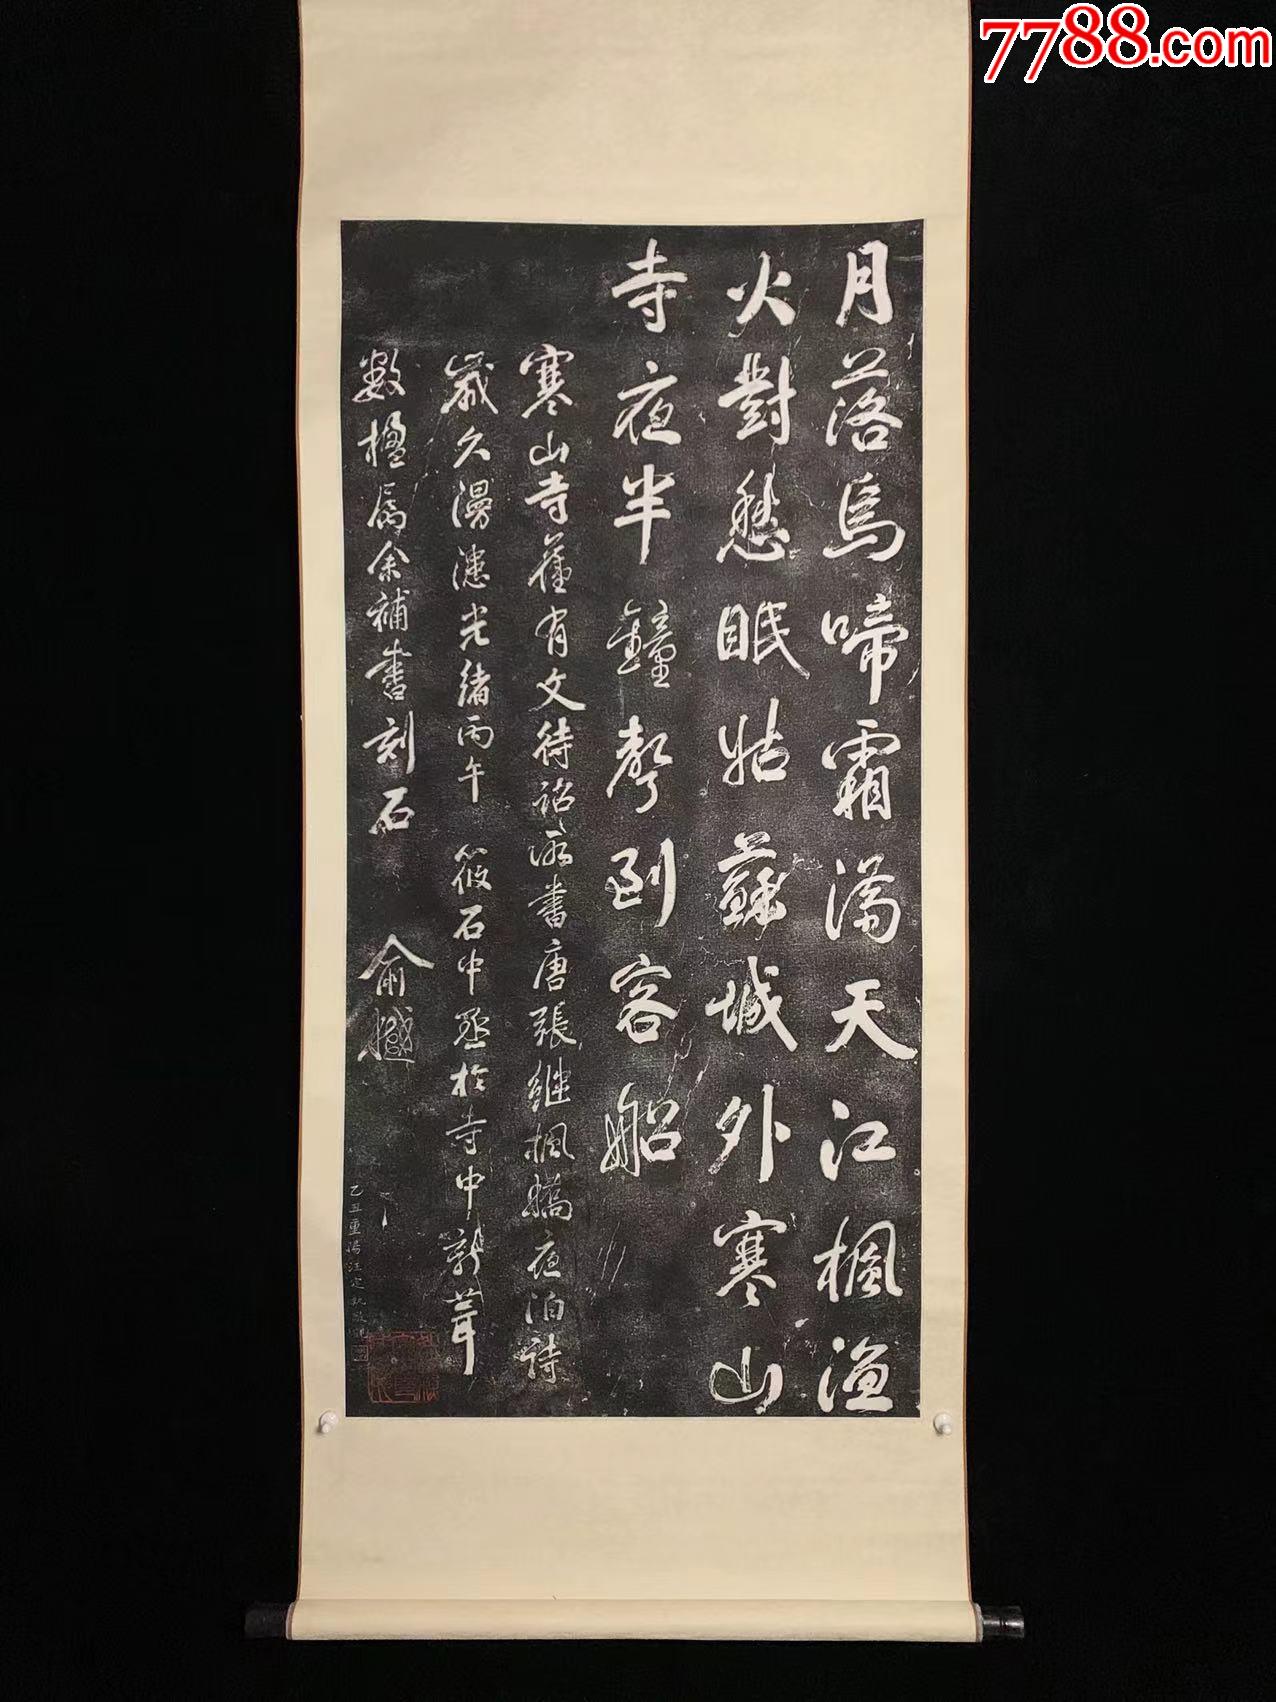 7788.com
月落烏啼霜滿天江楓漁
火對愁眠姑蘇城外寒山
寺夜半鐘聲到客船
寒山寺舊有文待詔所書唐張繼楓橋夜泊詩
歲久漫漶光緒丙午筱石中丞於寺中新葺
數楹屬余補書刻石 俞樾
乙丑重陽汪定